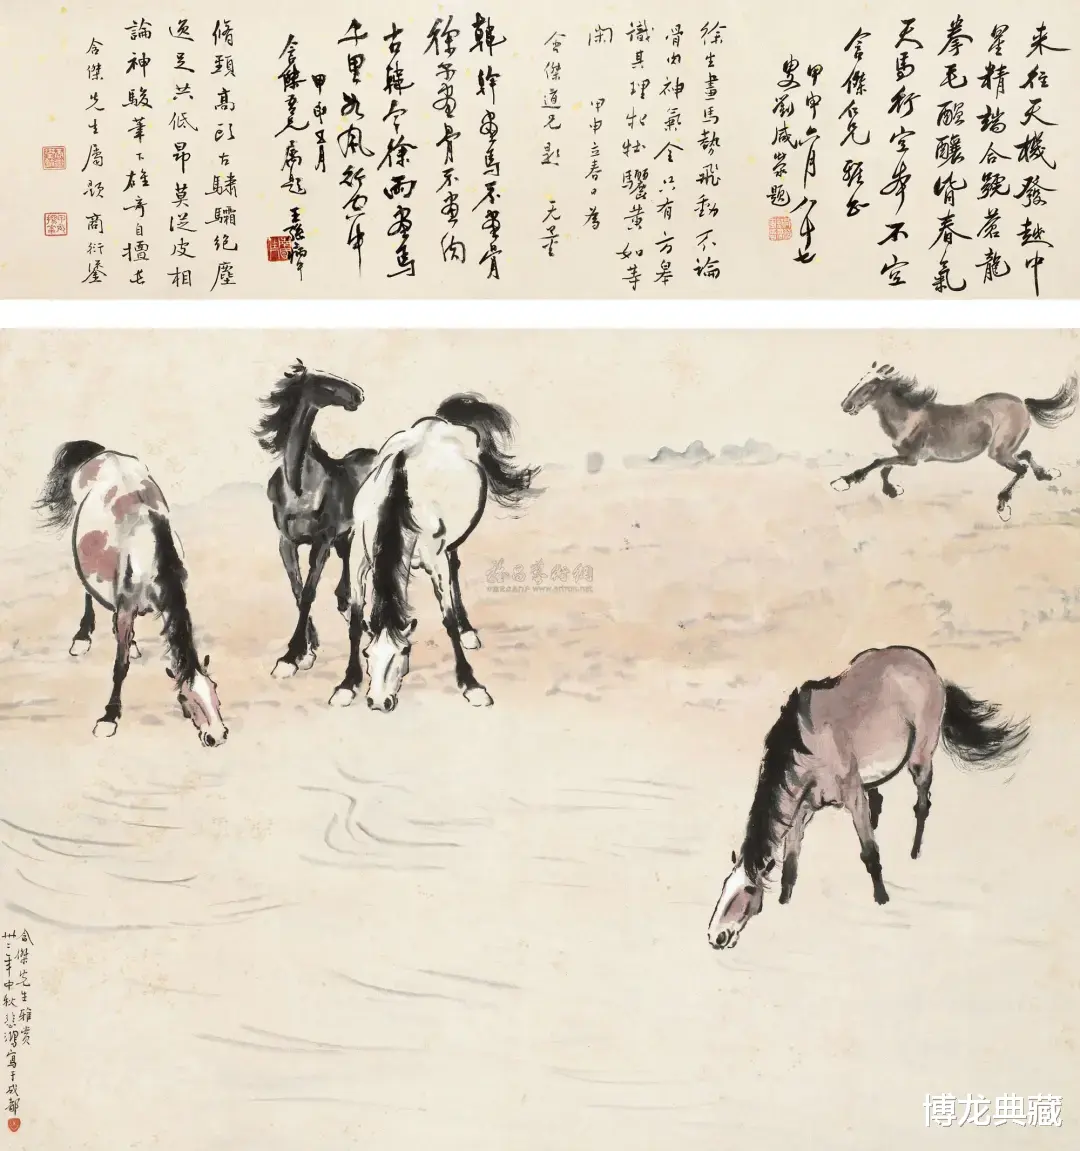 来往天機發越中
星精端合號蒼龍
拳毛醞釀皆春氣
天馬行空本不空
含傑仁兄雅正
甲申六月八十七
叟劉咸滎題
徐生畫馬勢飛動不論
骨肉神氣全只有方皋
識其理牝牡驪黃如等
閑 甲申立春日為
含傑道兄題 无量
韓幹畫馬不畫骨
徐子畫骨不畫肉
古韓今徐兩畫馬
千里如風行空中
甲申五月
含傑吾兄屬題
脩頸高 古驌驦絕塵
逸足共低昂莫從皮相
論神駿筆下雄奇自擅長
含傑先生屬題 商衍鎏
含傑先生雅賞
卅二年中秋悲鴻寫于成都
www.artrm.net
博龙典藏